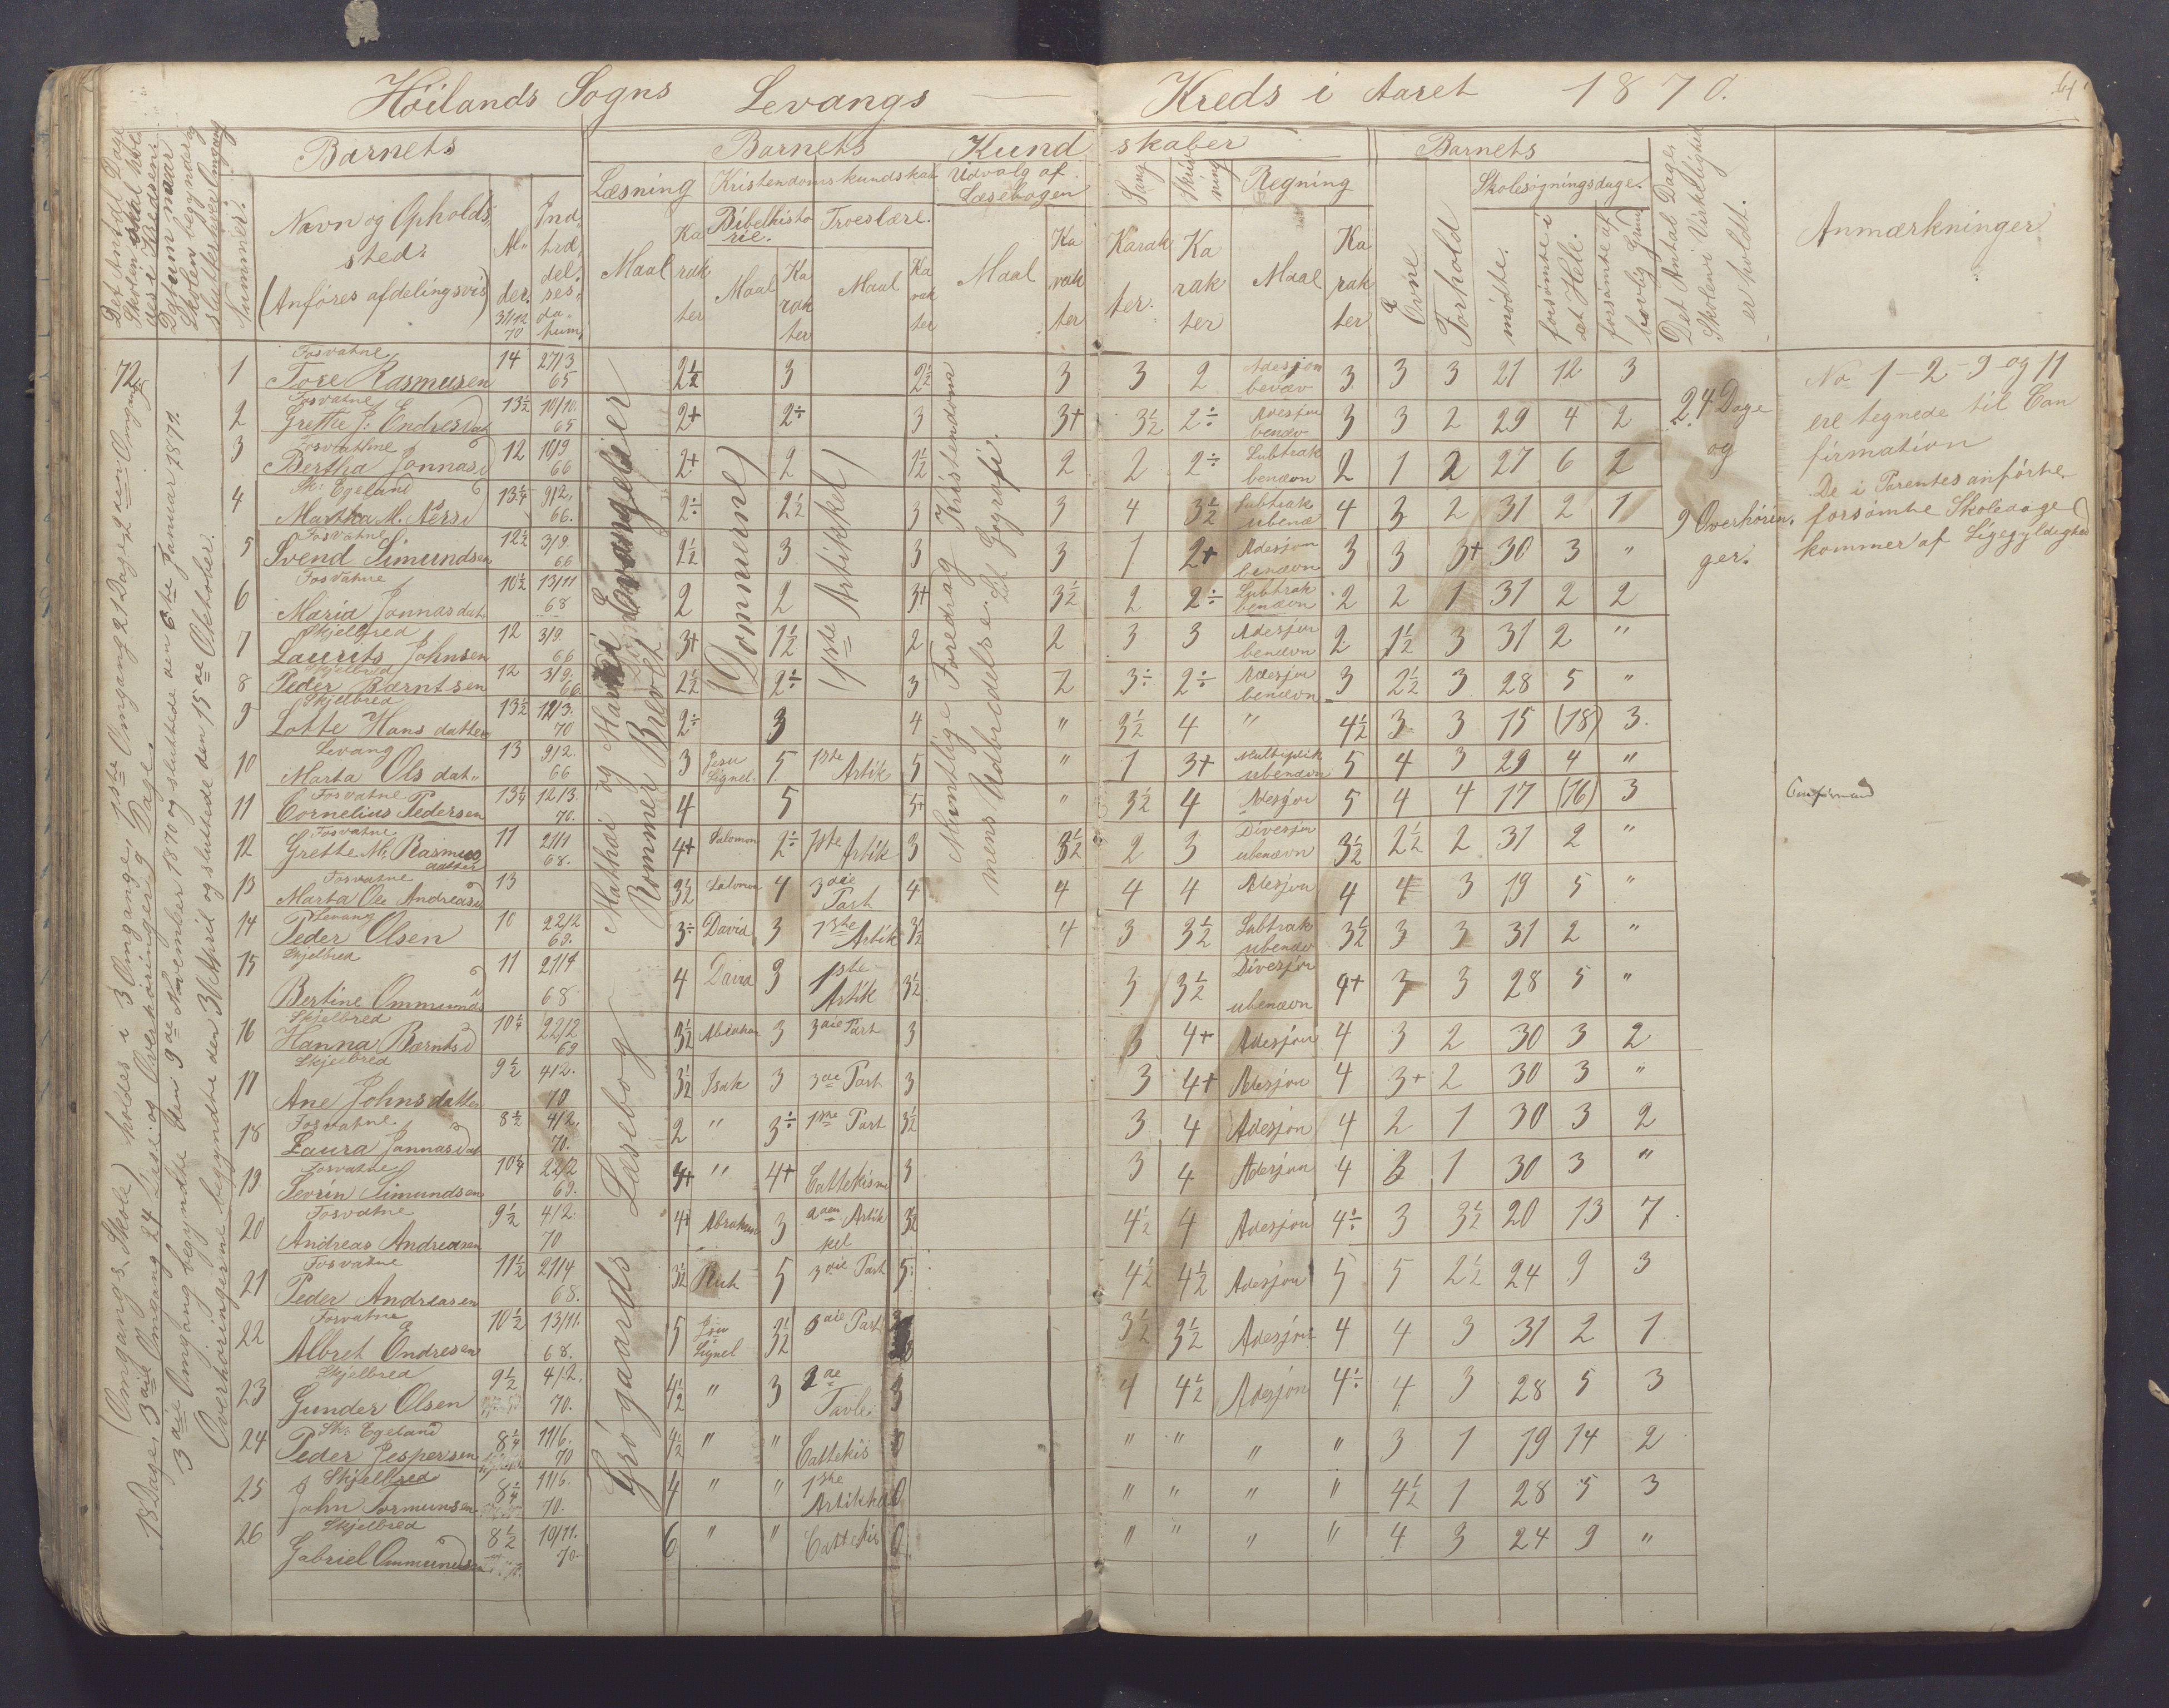 Höilands Sogns Levangs Kreds i Aaret 1870.
Barnets
Barnets Kundskaber
Barnets
Nummer.
Navn og Opholdssted.
(Anføres afdelingsvis)
Alder. 31/12 70
Indtrædelsesdatum
Læsning
Kristendomskundskab
Udvalg af Læsebogen
Sang
Skrivning
Regning
Evne
Forhold
Skolesøgningsdage.
Bibelhistorie.
Troeslære.
Maal
Karakter
Maal
Karakter
Maal
Karakter
Maal
Karakter
Karakter.
Karakter
Maal
Karakter
mödte.
forsömte i det Hele.
forsömte af lovlig Grund
Det Antal Dage Skolen i Virkelighed er holdt.
Anmærkninger
72
Mathæi og Marki Evangelier
Rommer Brevet
(Dommerne)
(1ste Artikkel)
Mundtlige Foredrag Kristendommens Udbredelse.
Grögaards Læsebog
1 Fosvatne 14 27/3 65
Tore Rasmusen 2½ 3 2½ 3 3 2 Adesjon benævn 3 3 3 21 12 3
2 Fosvatne 13½ 10/10. 65
Grethe J: Endresdat 2+ 2÷ 3 3+ 3½ 2÷ Adesjon benæv 3 3 2 29 4 2
3 Fosvatne 12 10/9 66
Bertha Jonnasd 2+ 2 1½ 2 2 2÷ Subtrak benævn 2 1 2 27 6 2
4 Sk: Egeland 13¼ 9/2. 66.
Martha M. Nersd 2÷ 2½ 3 3 4 3½ Subtrak ubenæ 4 3 2 31 2 1
5 Fosvatne 12½ 3/9. 66
Svend Simundsen 2½ 3 3 3 1 2+ Adesjon benævn 3 3 3+ 30 3 "
6 Fosvatne 10½ 13/11 68
Maria Jonnasdat 2 2 3+ 3½ 2 2÷ Subtrak benævn 2 2 1 31 2 2
7 Skjelbred 12 3/9. 66
Laurits Johnsen 3+ 1½ 2 2 3 3 Adesjon benævn 2 1½ 3 31 2 "
8 Skjelbred 12 3/9. 66
Peder Barntsen 2½ 2÷ 3 2 3÷ 2÷ Adesjon benævn 3 2½ 3 28 5 "
9 Skjelbred 13½ 12/3. 70
Lotte Hans datter 2÷ 3 4 " 3½ 4 " 4½ 3 3 15 (18) 3.
10 Levang 13 9/2. 66
Marta Ols dat" 3 Jesu Lignel. 5 1ste Artik 5 " 1 3+ Multiplik ubenævn 5 4 3 29 4 "
11 Fosvatne 13¼ 12/3. 70.
Cornelius Pedersen 4 5 5+ " 3½ 4 Adesjon 5 4 4 17 (16) 3
12 Fosvatne 11 21/1 68.
Grethe M. Rasmusdatter 4+ Salomon 2÷ 1ste Artik 3 3½ 2 3 Divesjon ubenævn 3½ 2½ 2 31 2 "
13 Fosvatne 13
Marta Ole Andreasd 3½ Salomon 4 3die Part 4 4 4 4 Adesjon 4 4 3 19 5 "
14 Levang 10 22/2 69.
Peder Olsen 3÷ David 3 1ste Artik 3½ 4 3 3½ Subtrak ubenæv 3½ 3 3 31 2 "
15 Skjelbred 11 21/4 68
Bertine Ommundsd 4 David 3 1ste Artik 3½ 3 3½ Divesjon ubenævn 4+ 3 3 28 5 "
16 Skjelbred 10¼ 22/2 69
Hanna Barntsd 3½ Abraham 3 3die Part 3 3 4+ Adesjon 4 3 2 30 3 2
17 Skjelbred 9½ 4/2. 70
Ane Johnsdatter 3½ Isak 3 3die Part 3 3 4+ Adesjon 4 3+ 2 30 3 "
18 Fosvatne 8½ 4/2. 70.
Laura Jonnasdat 2 " 3÷ 1ste Part 3½ 3 4 Adesjon 4 2 1 30 3 2
19 Fosvatne 10¼ 22/2 69.
Sevrin Simundsen 4+ " 4+ Cattekisme 3 3 4 Adesjon 4 3 1 30 3 "
20 Fosvatne 9½ 4/2. 70
Andreas Andreasen 4+ Abraham 3 2den Artikkel 3½ 4½ 4 Adesjon 4÷ 3 3½ 20 13 7
21 Fosvatne 11½ 21/4 68.
Peder Andreasen 3½ Rut 5 3die Part 5 4½ 4½ Adesjon 5 5 2½ 24 9 3
22 Fosvatne 10½ 13/11. 68.
Albret Endresen 5 Jesu Lignel 3½ 3die Part 3½ 3½ Adesjon 4 4 3 31 2 1
23 Skjelbred 9½ 4/2. 70.
Gunder Olsen 4½ " 3 2de Tavle 3 4 4½ Adesjon 4÷ 4 3 28 5 3
24 Sk: Egeland 8¼ 11/6. 70
Peder Jespersen 4½ " " Cattekis 0 " " " " 3 1 19 14 2
25 Skjelbred 8¼ 11/6. 70.
John Tormunsen 4 " " 1ste Artikkel 0 " " " " 4½ 1 28 5 3
26 Skjelbred 8½ 10/11. 70
Gabriel Ommundsen 6 " " Cattekis 0 " " " " 4 3 24 9 "
24 Dage
og
9 Overhörin.
ger.
No 1-2-9 og 11
ere tegnede til Con
firmation
De i Parentes anførte
forsømte Skoledage
kommer af Ligegyldighed
Confirmand
Det Antal Dage Skolen skal holdes i Kredsen.
Datum naar Skolen begynder og slutter hver Omgang
(Omgangs Skole holdes i 3 Omgange, 1ste Omgang 21 Dage, 2den Omgang
18 Dage, 3die Omgang 24 Læse og Overhøringer 9 Dage
3die Omgang begyndte den 9de November 1870 og sluttede den 6te Januar 1871.
Overhøringerne begyndte den 3 April og sluttede den 15de Oktober.